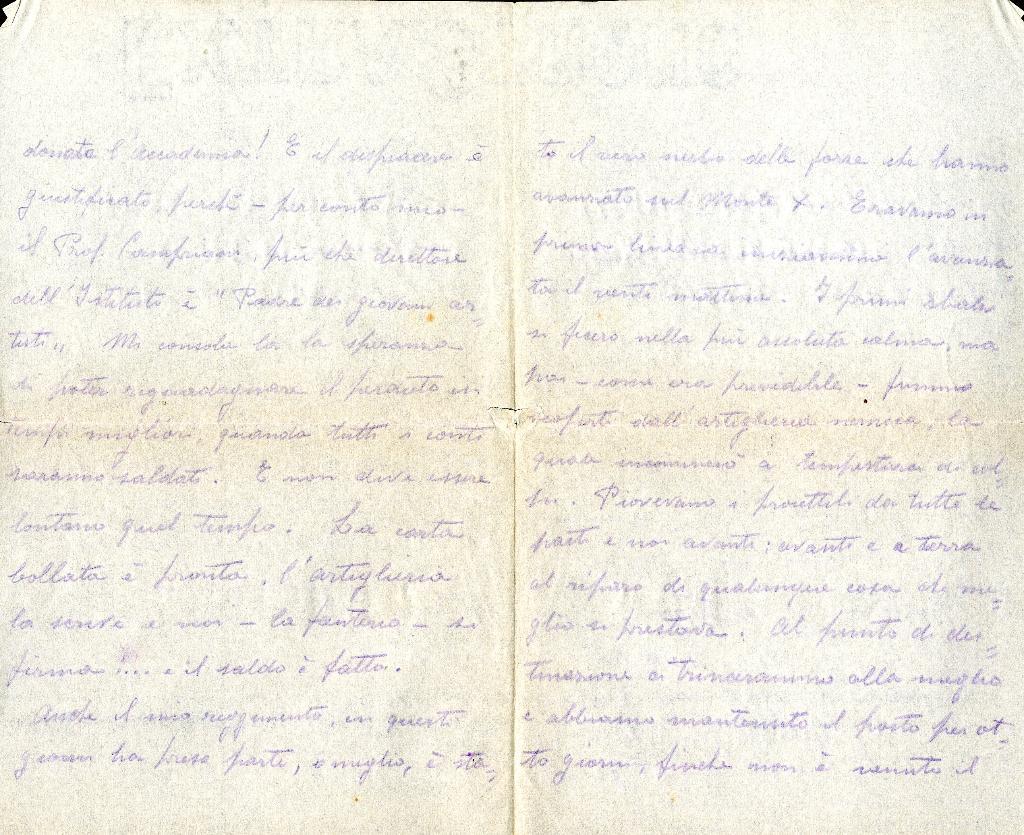 donata l'accademia! E il dispiacere è
giustificato, perchè - per conto mio -
il Prof. Campriani, più che direttore
dell'Istituto è "Padre dei giovani ar=
tisti„ Mi consola la speranza
di poter riguadagnare il perduto in
tempi migliori, quando tutti i conti
saranno saldati. E non deve essere
lontano quel tempo. La carta
bollata è pronta, l'artiglieria
la scrive e noi - la fanteria - si
firma!... e il saldo è fatto.
Anche il mio reggimento, in questi
giorni ha preso parte, o meglio, è sta=
to il vero nerbo delle forze che hanno
avanzato sul Monte X. Eravamo in
prima linea e incominciammo l'avanza=
ta il venti mattina. I primi sbalzi
si fecero nella più assoluta calma, ma
poi - come era prevedibile - fummo
scoperti dall'artiglieria nemica, la
quale incominciò a tempestare di col=
pi. Piovevano i proiettili da tutte le
parti e noi avanti; avanti e a terra
al riparo di qualunque cosa che me=
glio si prestava. Al punto di des=
tinazione ci trincerammo alla meglio
e abbiamo mantenuto il posto per ot=
to giorni, finchè non è venuto il